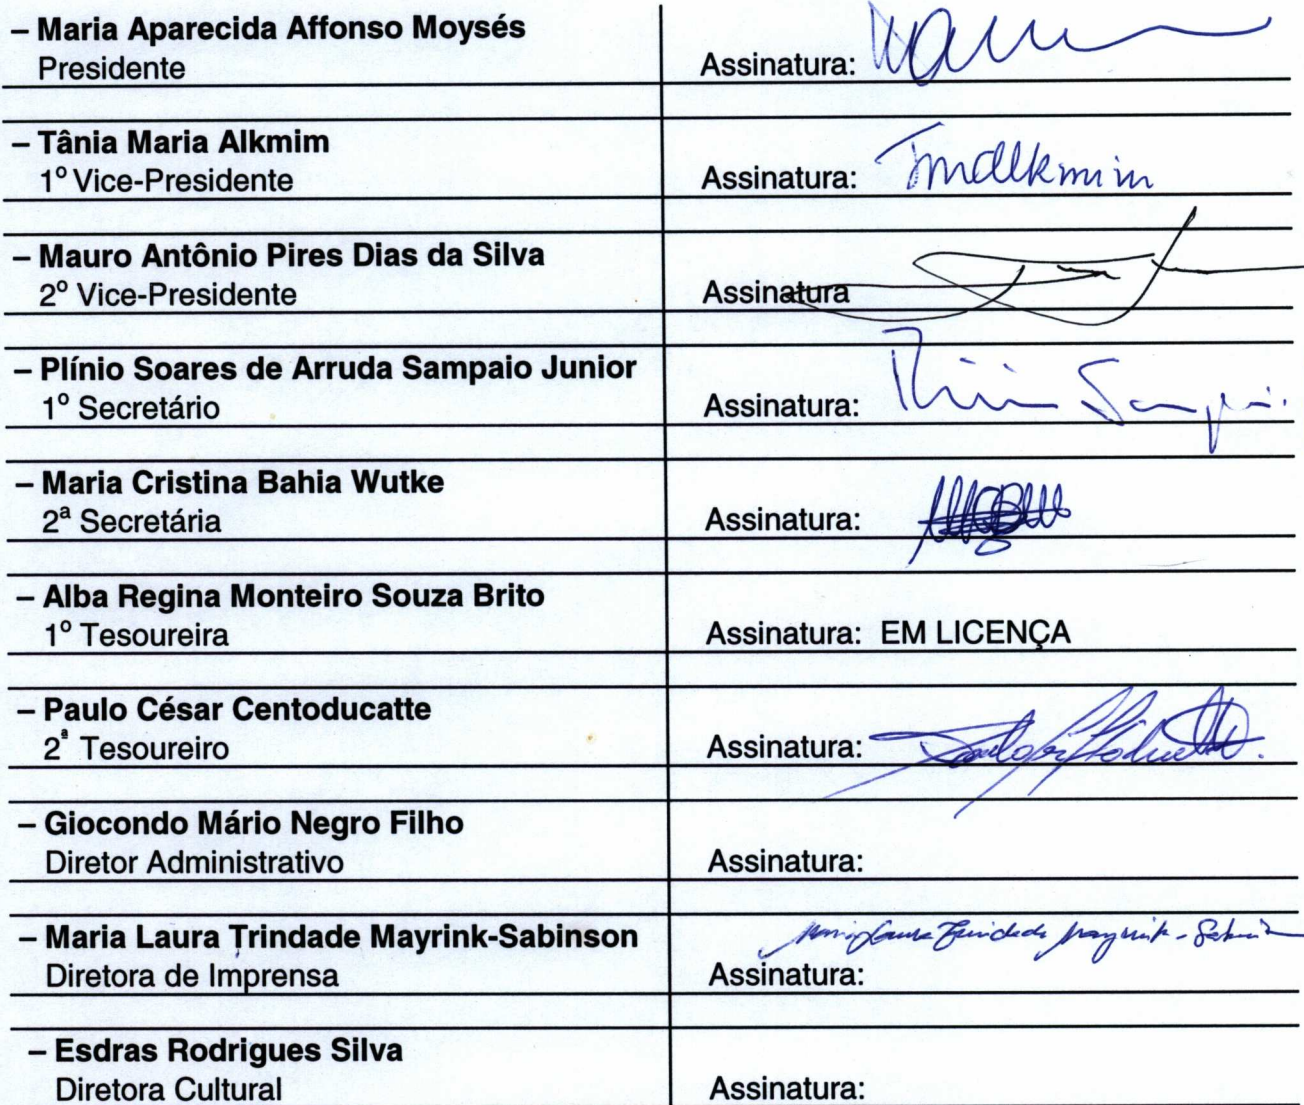 – Maria Aparecida Affonso Moysés
Presidente
Assinatura:
– Tânia Maria Alkmim
1º Vice-Presidente
Assinatura: Tmalkmim
– Mauro Antônio Pires Dias da Silva
2º Vice-Presidente
Assinatura
– Plínio Soares de Arruda Sampaio Junior
1º Secretário
Assinatura: Plínio Sampaio.
– Maria Cristina Bahia Wutke
2ª Secretária
Assinatura:
– Alba Regina Monteiro Souza Brito
1º Tesoureira
Assinatura: EM LICENÇA
– Paulo César Centoducatte
2ª Tesoureiro
Assinatura:
– Giocondo Mário Negro Filho
Diretor Administrativo
Assinatura:
– Maria Laura Trindade Mayrink-Sabinson
Diretora de Imprensa
Maria Laura Trindade Mayrink-Sabinson
Assinatura:
– Esdras Rodrigues Silva
Diretora Cultural
Assinatura: